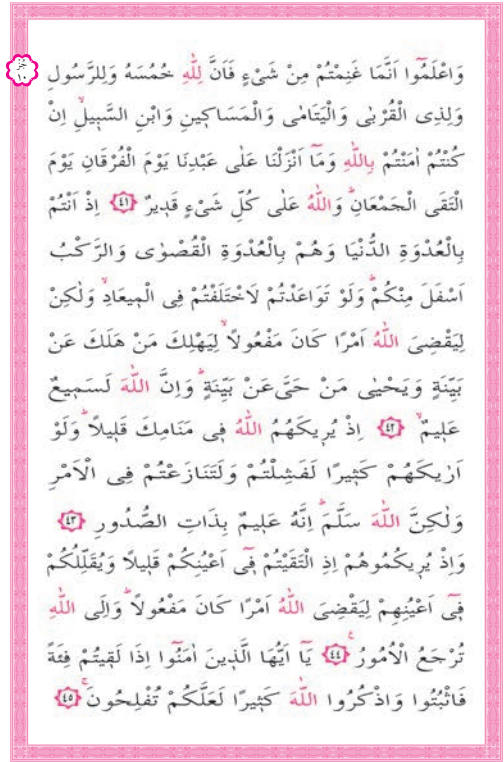 جز ١٠
وَاعْلَمُٓوا اَنَّمَا غَنِمْتُمْ مِنْ شَیْءٍ فَاَنَّ لِلّٰهِ خُمُسَهُ وَلِلرَّسُولِ
وَلِذِی الْقُرْبٰی وَالْيَتَامٰی وَالْمَسَاك۪ينِ وَابْنِ السَّب۪يلِۙ اِنْ
كُنْتُمْ اٰمَنْتُمْ بِاللّٰهِ وَمَٓا اَنْزَلْنَا عَلٰی عَبْدِنَا يَوْمَ الْفُرْقَانِ يَوْمَ
الْتَقَی الْجَمْعَانِۜ وَاللّٰهُ عَلٰی كُلِّ شَیْءٍ قَد۪يرٌ ﴿٤١﴾ اِذْ اَنْتُمْ
بِالْعُدْوَةِ الدُّنْيَا وَهُمْ بِالْعُدْوَةِ الْقُصْوٰی وَالرَّكْبُ
اَسْفَلَ مِنْكُمْۜ وَلَوْ تَوَاعَدْتُمْ لَاخْتَلَفْتُمْ فِی الْم۪يعَادِۙ وَلٰكِنْ
لِيَقْضِیَ اللّٰهُ اَمْرًا كَانَ مَفْعُولًاۙ لِيَهْلِكَ مَنْ هَلَكَ عَنْ
بَيِّنَةٍ وَيَحْيٰی مَنْ حَیَّ عَنْ بَيِّنَةٍۜ وَاِنَّ اللّٰهَ لَسَم۪يعٌ
عَل۪يمٌۙ ﴿٤٢﴾ اِذْ يُر۪يكَهُمُ اللّٰهُ ف۪ی مَنَامِكَ قَل۪يلًاۜ وَلَوْ
اَرٰيكَهُمْ كَث۪يرًا لَفَشِلْتُمْ وَلَتَنَازَعْتُمْ فِی الْاَمْرِ
وَلٰكِنَّ اللّٰهَ سَلَّمَۜ اِنَّهُ عَل۪يمٌ بِذَاتِ الصُّدُورِ ﴿٤٣﴾
وَاِذْ يُر۪يكُمُوهُمْ اِذِ الْتَقَيْتُمْ ف۪ٓی اَعْيُنِكُمْ قَل۪يلًا وَيُقَلِّلُكُمْ
ف۪ٓی اَعْيُنِهِمْ لِيَقْضِیَ اللّٰهُ اَمْرًا كَانَ مَفْعُولًاۜ وَاِلَی اللّٰهِ
تُرْجَعُ الْاُمُورُ۟ ﴿٤٤﴾ يَٓا اَيُّهَا الَّذ۪ينَ اٰمَنُٓوا اِذَا لَق۪يتُمْ فِئَةً
فَاثْبُتُوا وَاذْكُرُوا اللّٰهَ كَث۪يرًا لَعَلَّكُمْ تُفْلِحُونَۚ ﴿٤٥﴾